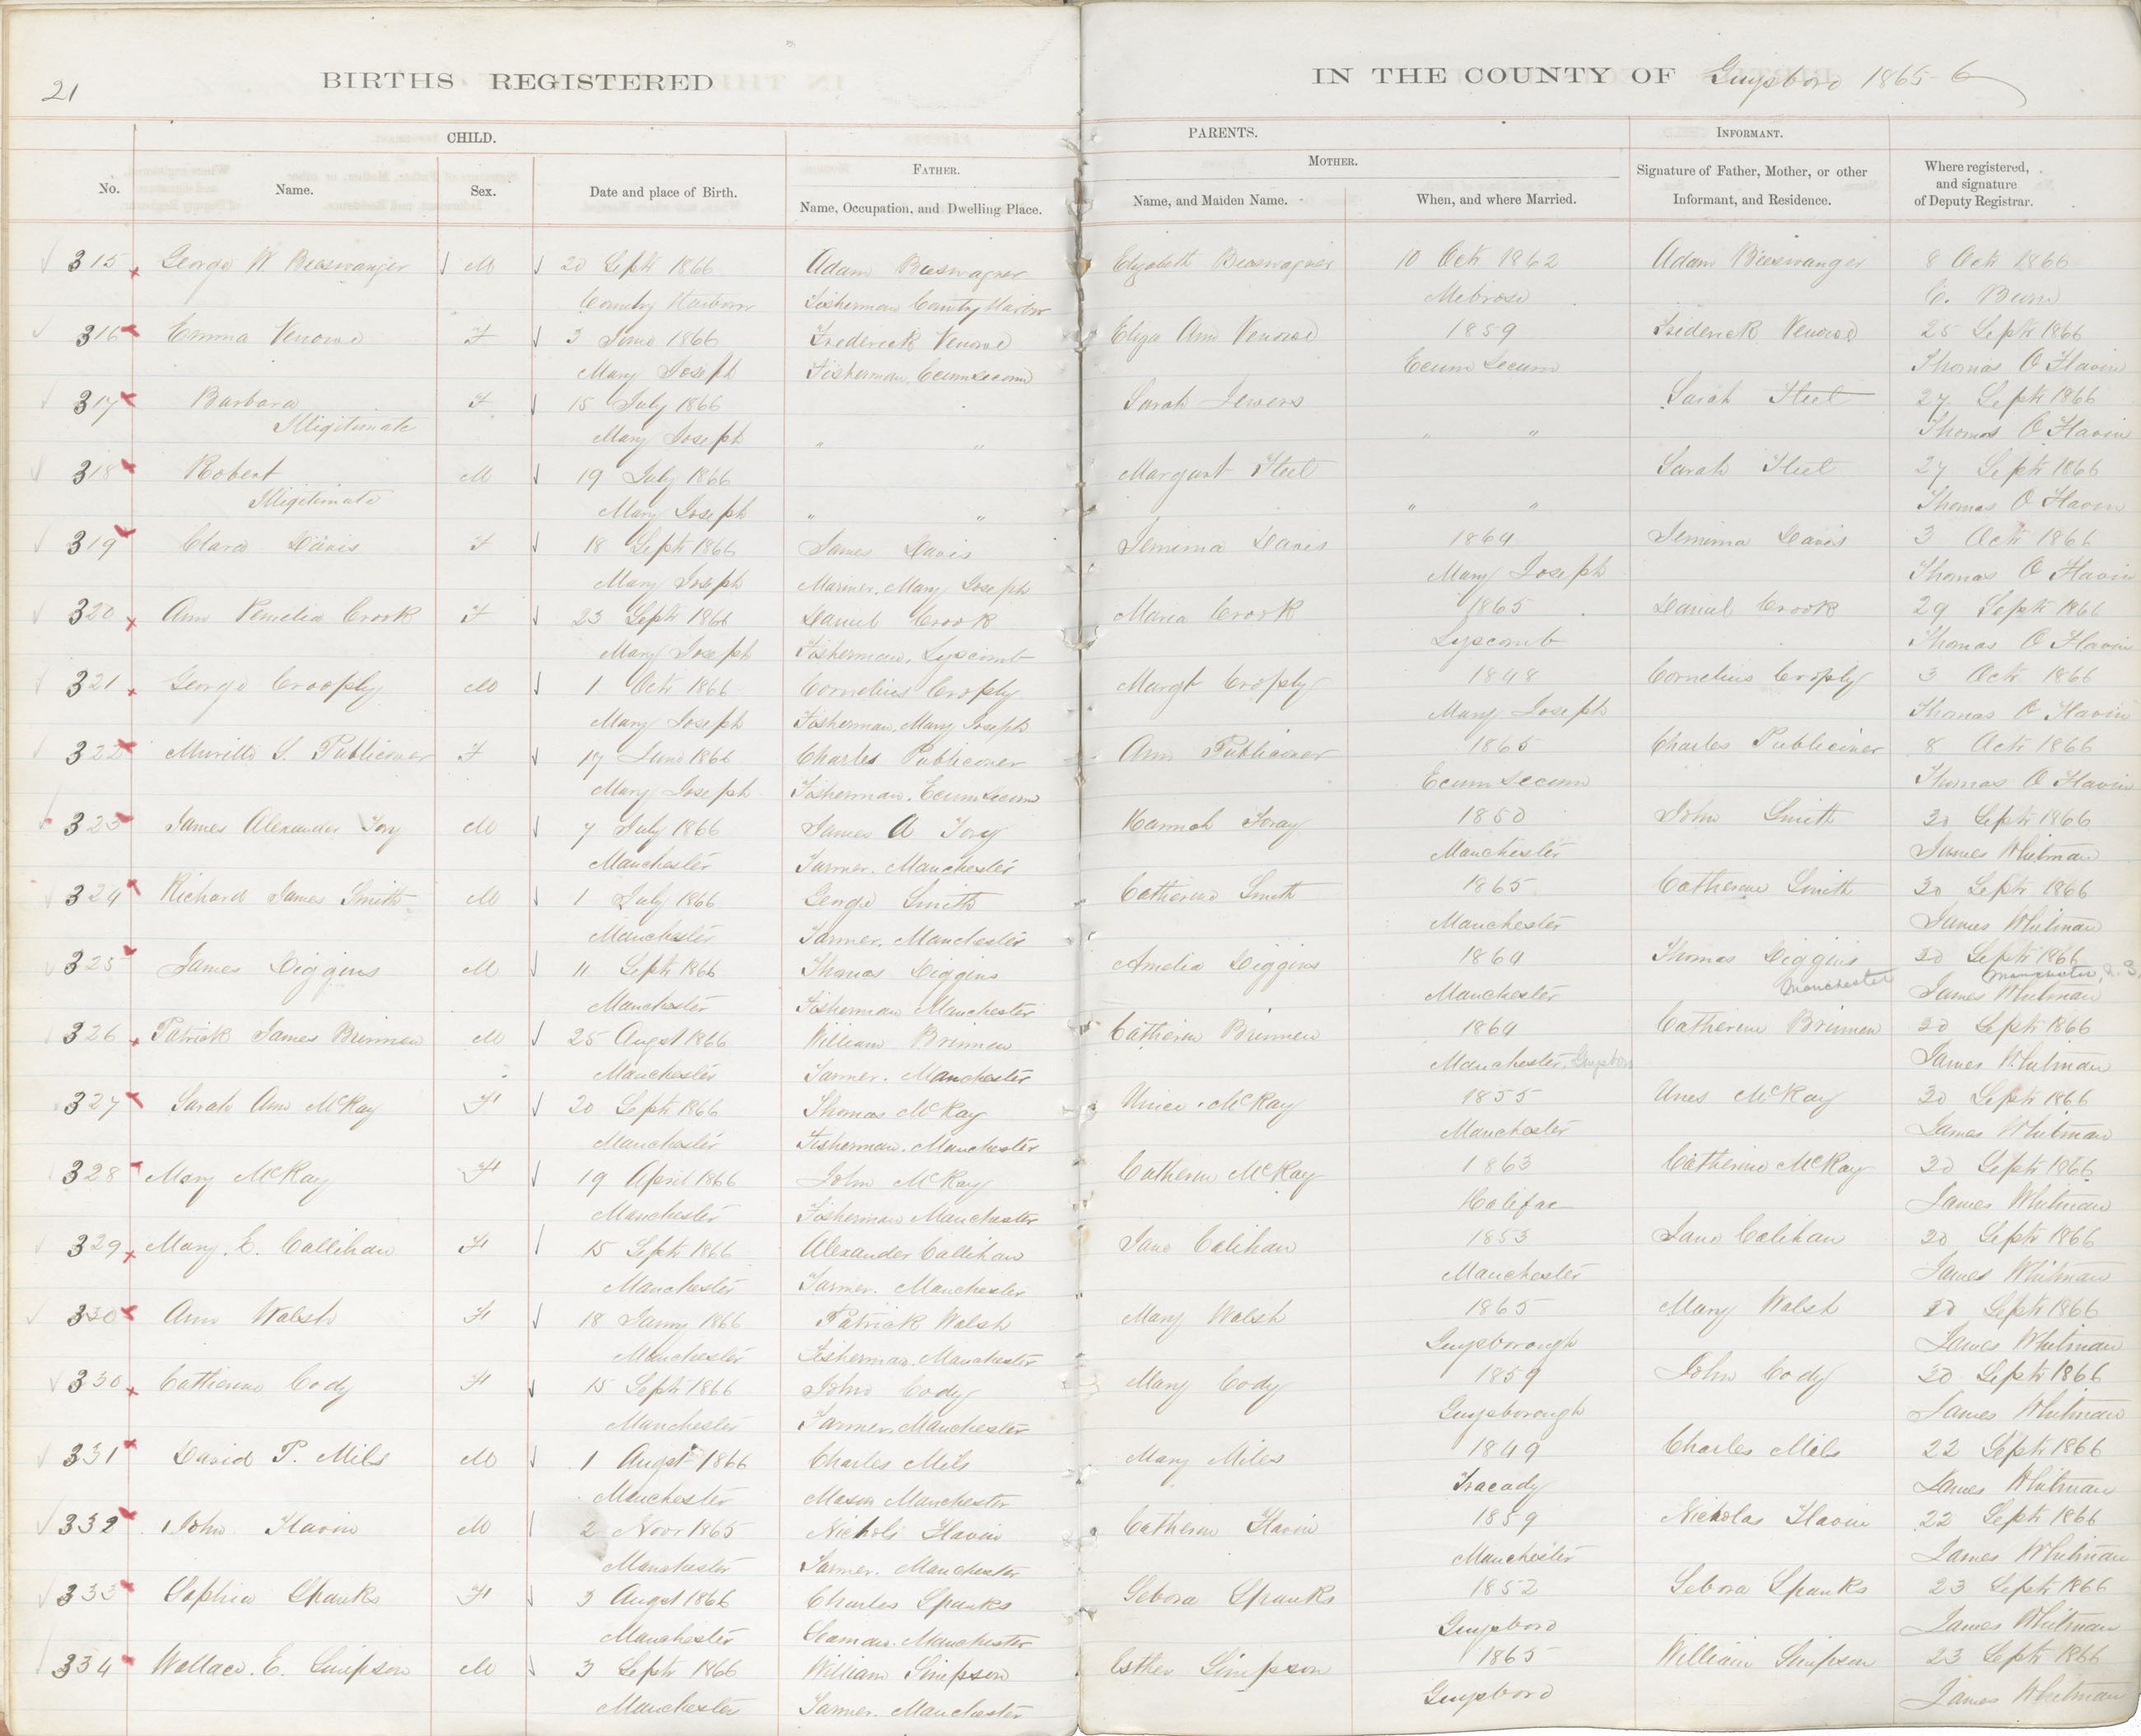 21
BIRTHS REGISTERED
IN THE COUNTY OF Guysboro 1865-6
CHILD.
PARENTS.
INFORMANT.
No.
Name.
Sex.
Date and place of Birth.
FATHER.
Name, Occupation, and Dwelling Place.
MOTHER.
Name, and Maiden Name.
When, and where Married.
Signature of Father, Mother, or other
Informant, and Residence.
Where registered,
and signature
of Deputy Registrar.
315 George W Beeswanjer M 20 Sept 1866 Adam Beeswagner Elizabeth Beeswagner 10 Oct 1862 Adam Bieswanger 8 Oct 1866
Country Harbour Fisherman Country Harbor Melrose C. Burn
316 Emma Venowe F 3 June 1866 Frederick Venowe Eliza Ann Venowe 1859 Frederick Venowe 25 Sept 1866
Mary Joseph Fisherman, Ecum Secum Ecum Secum Thomas O Flavin
317 Barbara F 15 July 1866 Sarah Jewers Sarah Fleet 27 Sept 1866
Illigitimate Mary Joseph " " " " Thomas O Flavin
318 Robert M 19 July 1866 Margart Fleet Sarah Fleet 27 Sept 1866
Illigitimate Mary Joseph " " " " Thomas O Flavin
319 Clara Davis F 18 Sept 1866 James Davis Jemima Davis 1864 Jemima Davis 3 Oct 1866
Mary Joseph Mariner, Mary Joseph Mary Joseph Thomas O Flavin
320 Ann Pemelia Crook F 23 Sept 1866 Daniel Crook Maria Crook 1865 Daniel Crook 29 Sept 1866
Mary Joseph Fisherman, Lyscomb Lyscomb Thomas O Flavin
321 George Croophy M 1 Oct 1866 Cornelius Crophy Margt Crophy 1848 Cornelius Crophy 3 Oct 1866
Mary Joseph Fisherman, Mary Joseph Mary Joseph Thomas O Flavin
322 Murilla S. Publicover F 17 June 1866 Charles Publicover Ann Publicover 1865 Charles Publicover 8 Oct 1866
Mary Joseph Fisherman. Ecum Secum Ecum Secum Thomas O Flavin
323 James Alexander Tory M 7 July 1866 James A Tory Hannah Toray 1850 John Smith 20 Sept 1866
Manchester Farmer. Manchester Manchester James Whitman
324 Richard James Smith M 1 July 1866 George Smith Catherine Smith 1865 Catherine Smith 20 Sept 1866
Manchester Farmer. Manchester Manchester James Whitman
325 James Diggins M 11 Sept 1866 Thomas Diggins Amelia Diggins 1864 Thomas Diggins 20 Sept 1866
Manchester Fisherman Manchester Manchester Manchester Manchester James Whitman
326 Patrick James Brinnen M 25 Augst 1866 William Brinnen Catherin Brinnen 1864 Catherin Brinnen 20 Sept 1866
Manchester Farmer. Manchester Manchester, Guysboro James Whitman
327 Sarah Ann McKay F 20 Sept 1866 Thomas McKay Unice McKay 1855 Unes McKay 20 Sept 1866
Manchester Fisherman. Manchester Manchester James Whitman
328 Mary McKay F 19 April 1866 John McKay Catherin McKay 1863 Catherine McKay 20 Sept 1866
Manchester Fisherman Manchester Halifax James Whitman
329 Mary. E. Callihan F 15 Sept 1866 Alexander Callihan Jane Calihan 1853 Jane Calihan 20 Sept 1866
Manchester Farmer. Manchester Manchester James Whitman
330 Ann Walsh F 18 Janry 1866 Patrick Walsh Mary Walsh 1865 Mary Walsh 20 Sept 1866
Manchester Fisherman. Manchester Guysborough James Whitman
330 Catherine Cody F 15 Sept 1866 John Cody Mary Cody 1859 John Cody 20 Sept 1866
Manchester Farmer. Manchester Guysborough James Whitman
331 David P. Mils M 1 Augst 1866 Charles Mils Mary Miles 1849 Charles Mils 22 Sept 1866
Manchester Mason Manchester Tracady James Whitman
332 John Flavin M 2 Novr 1865 Nichols Flavin Catherin Flavin 1859 Nicholas Flavin 22 Sept 1866
Manchester Farmer. Manchester Manchester James Whitman
333 Sophia Spanks F 3 Augst 1866 Charles Spanks Sebora Spanks 1852 Sebora Spanks 23 Sept 1866
Manchester Seaman. Manchester Guysboro James Whitman
334 Wallace. E. Simpson M 3 Sept 1866 William Simpson Esther Simpson 1865 William Simpson 23 Sept 1866
Manchester Farmer. Manchester Guysboro James Whitman